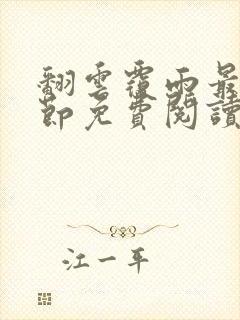 翻雲覆雨最
節免費閱讀
江一平